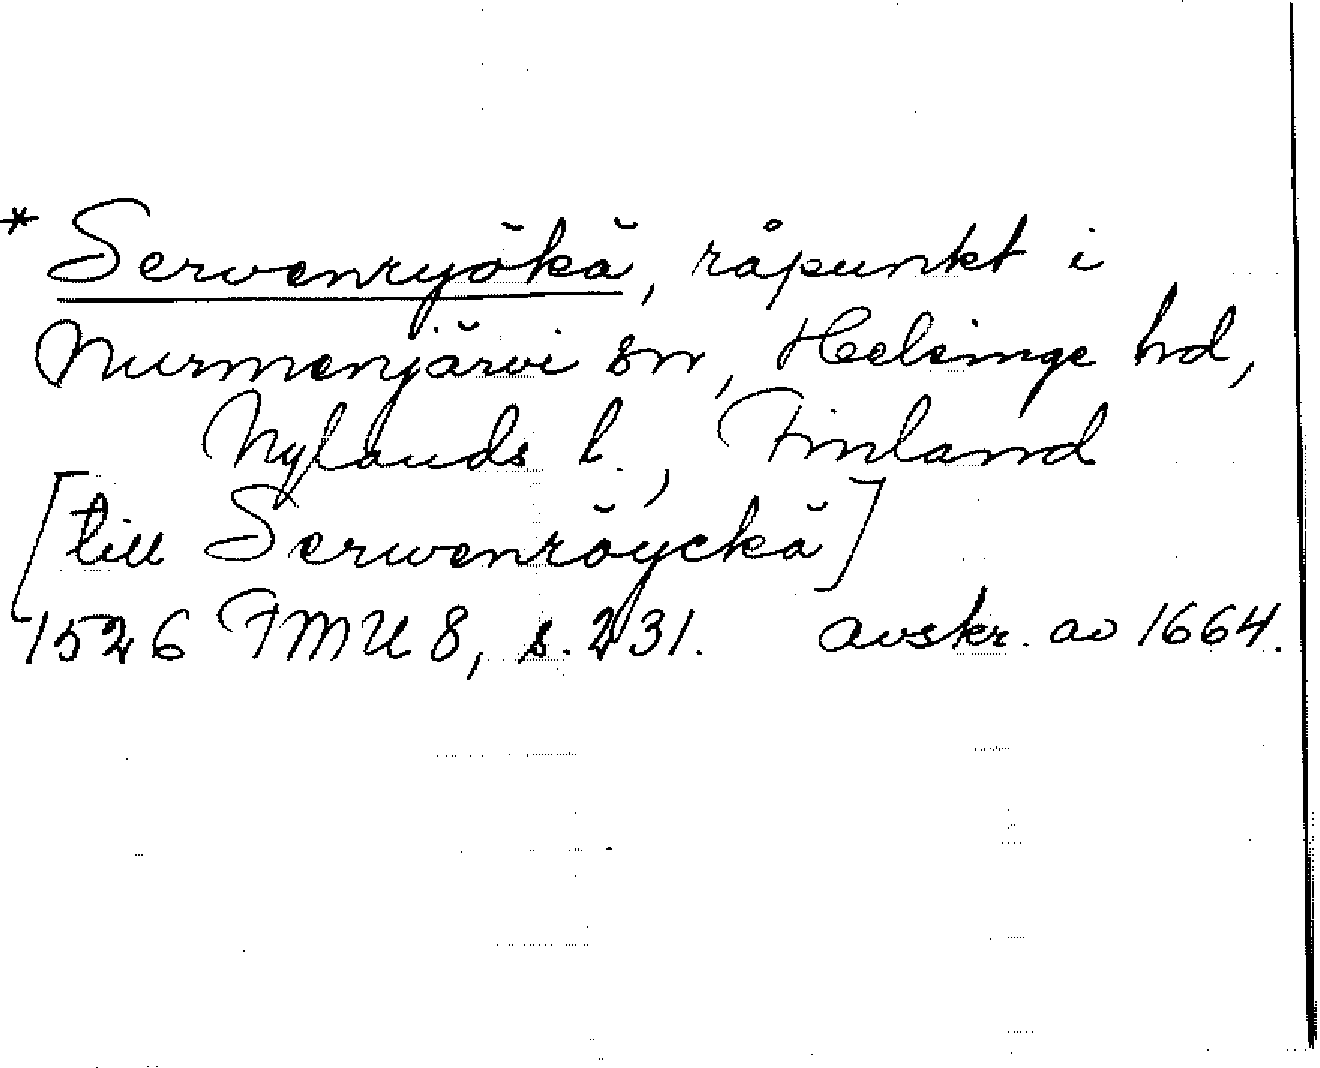 * Servenryökä, råpunkt i
Nurmenjärvi sn, Helsinge hd,
Nylands l., Finland
[till Serwenröyckä]
1526 FMU 8, s. 231. avskr. av 1664.